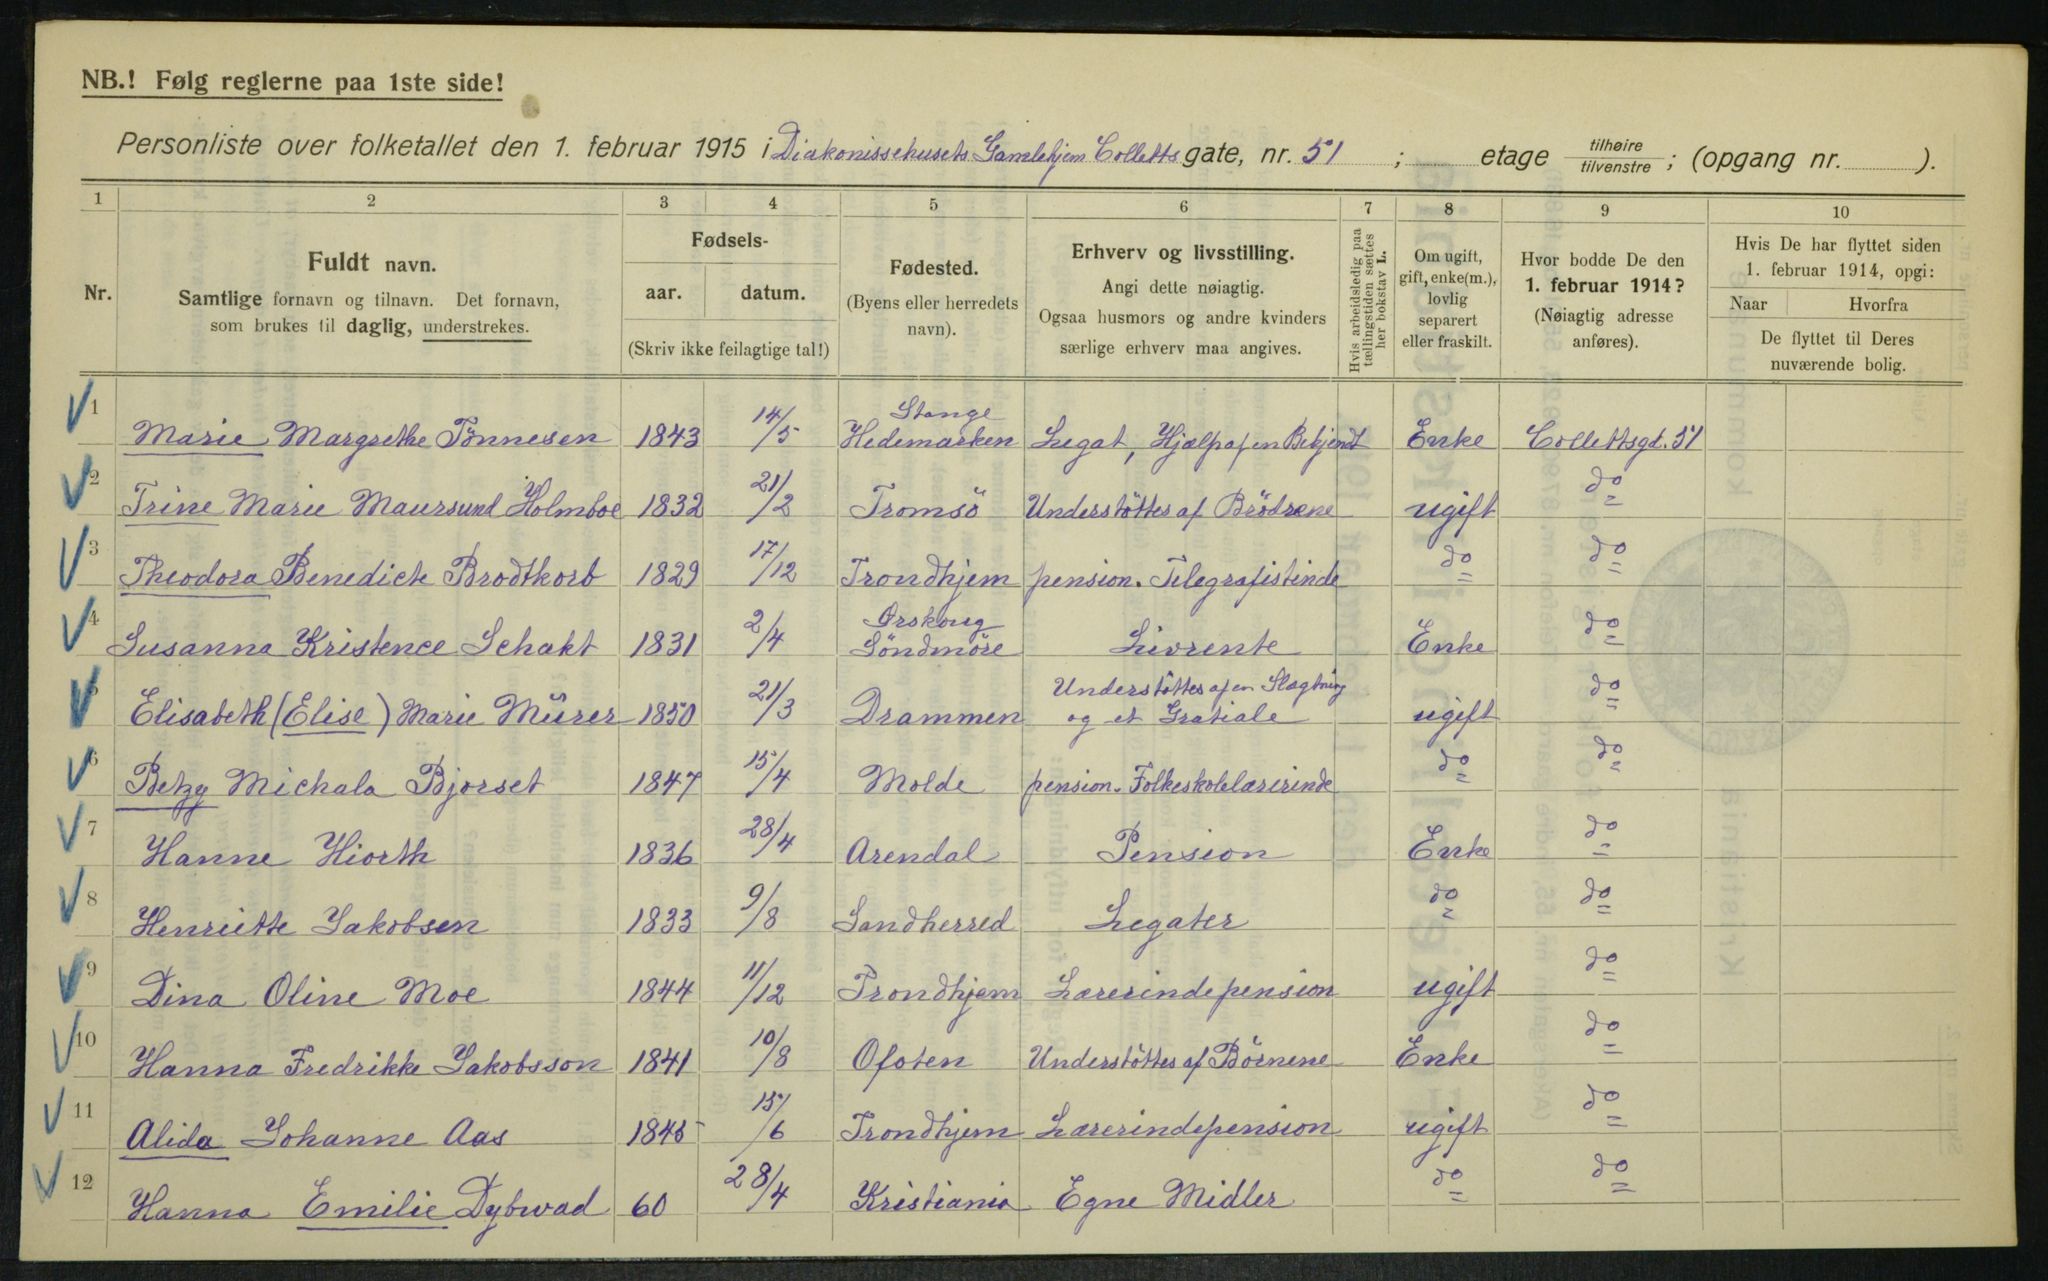 NB.! Følg reglerne paa 1ste side!
Personliste over folketallet den 1. februar 1915 i Diakonissehusets Gamlehjem Colletts gate, nr. 51 ; etage tilhøire/tilvenstre ; (opgang nr. ).
1 2 3 4 5 6 7 8 9 10
Nr.
Fuldt navn.
Samtlige fornavn og tilnavn. Det fornavn,
som brukes til daglig, understrekes.
Fødsels-
aar. datum.
(Skriv ikke feilagtige tal!)
Fødested.
(Byens eller herredets
navn).
Erhverv og livsstilling.
Angi dette nøiagtig.
Ogsaa husmors og andre kvinders
særlige erhverv maa angives.
Hvis arbeidsledig paa
tællingstiden sættes
her bokstav L.
Om ugift,
gift, enke(m.),
lovlig
separert
eller fraskilt.
Hvor bodde De den
1. februar 1914?
(Nøiagtig adresse
anføres).
Hvis De har flyttet siden
1. februar 1914, opgi:
Naar Hvorfra
De flyttet til Deres
nuværende bolig.
1 Marie Margrethe Tönnesen 1843 14/5 Stange Hedemarken Legat, Hjælp af en Bekjendt Enke Collettsgt. 51
2 Trine Marie Maursund Holmboe 1832 21/2 Tromsö Understöttes af Brödrene ugift do
3 Theodora Benedicte Brodtkorb 1829 17/12 Trondhjem pension. Telegrafistinde do do
4 Susanna Kristence Schakt 1831 2/4 Ørskoug Söndmöre Livrente Enke do
5 Elisabeth (Elise) Marie Mürer 1850 21/3 Drammen Understöttes af en Slægtning og et Gratiale ugift do
6 Betzy Michala Bjorset 1847 15/4 Molde pension. Folkeskolelærerinde do do
7 Hanne Hiorth 1836 28/4 Arendal Pension Enke do
8 Henriette Jakobsen 1833 9/8 Sandherred Legater do do
9 Dina Oline Moe 1844 11/12 Trondhjem Lærerindepension ugift do
10 Hanna Fredrikke Jakobsson 1841 10/8 Ofoten Understöttes af Börnene Enke do
11 Alida Johanne Aas 1845 15/6 Trondhjem Lærerindepension ugift do
12 Hanna Emilie Dybwad 60 28/4 Kristiania Egne Midler do do